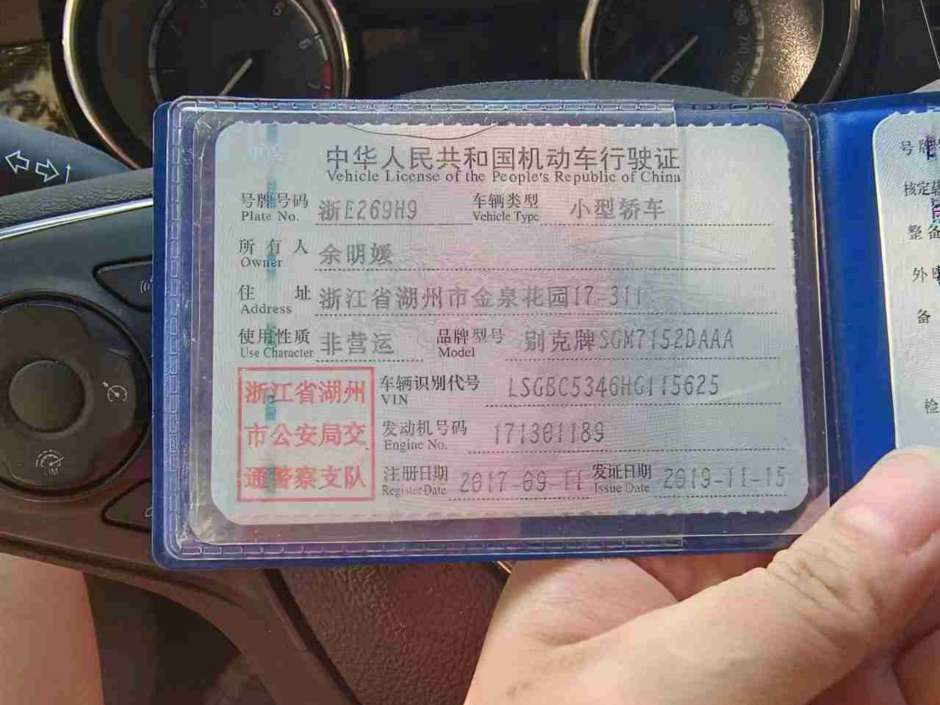 中华人民共和国机动车行驶证
Vehicle License of the People's Republic of China
号牌号码 浙E269H9 车辆类型 小型轿车
Plate No. Vehicle Type
所有人 余明媛
Owner
住址 浙江省湖州市金泉花园17-311
Address
使用性质 非营运 品牌型号 别克牌SGM7152DAAA
Use Character Model
浙江省湖州
市公安局交
通警察支队
车辆识别代号 LSGBC5346HG115625
VIN
发动机号码 171301189
Engine No.
注册日期 2017-09-11 发证日期 2019-11-15
Register Date Issue Date
号牌
核定载
整备
外
备
检